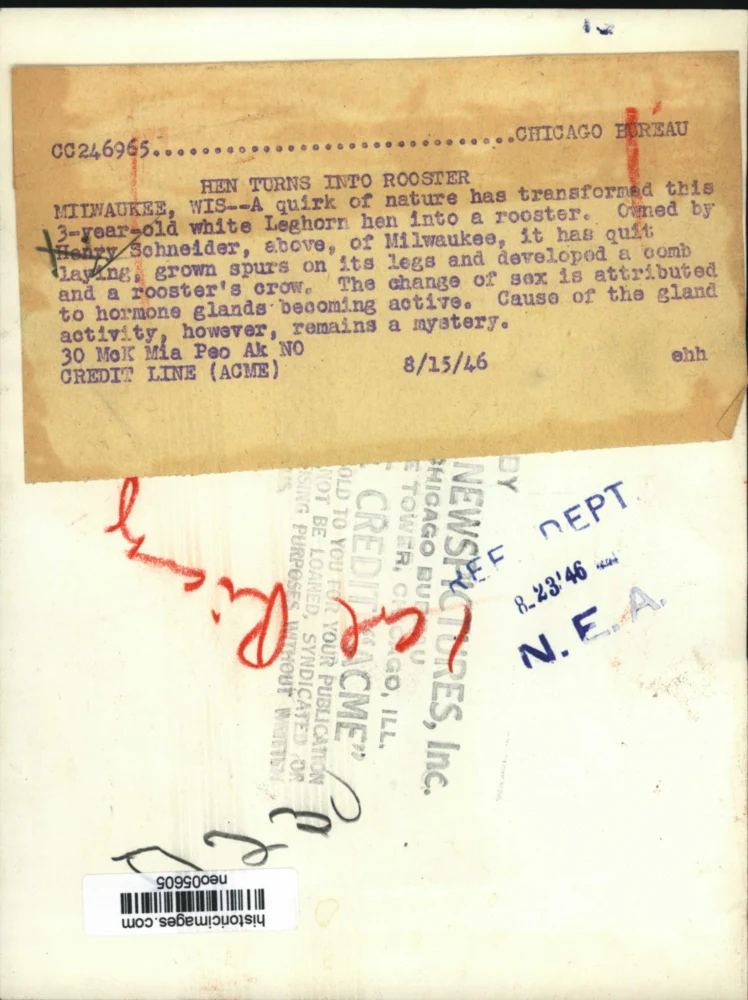 CC246965......................................CHICAGO BUREAU
HEN TURNS INTO ROOSTER
MILWAUKEE, WIS--A quirk of nature has transformed this
3-year-old white Leghorn hen into a rooster. Owned by
Henry Schneider, above, of Milwaukee, it has quit
laying, grown spurs on its legs and developed a comb
and a rooster's crow. The change of sex is attributed
to hormone glands becoming active. Cause of the gland
activity, however, remains a mystery.
30 McK Mia Peo Ak NO
CREDIT LINE (ACME) 8/15/46 ehh
BY
NEWSPICTURES, Inc.
CHICAGO BUREAU
TOWER, CHICAGO, ILL.
CREDIT "ACME"
SOLD TO YOU FOR YOUR PUBLICATION
NOT BE LOANED, SYNDICATED OR
PURPOSES WITHOUT WRITTEN
REF DEPT.
8-23'46
N.E.A.
historicimages.com
neo05605